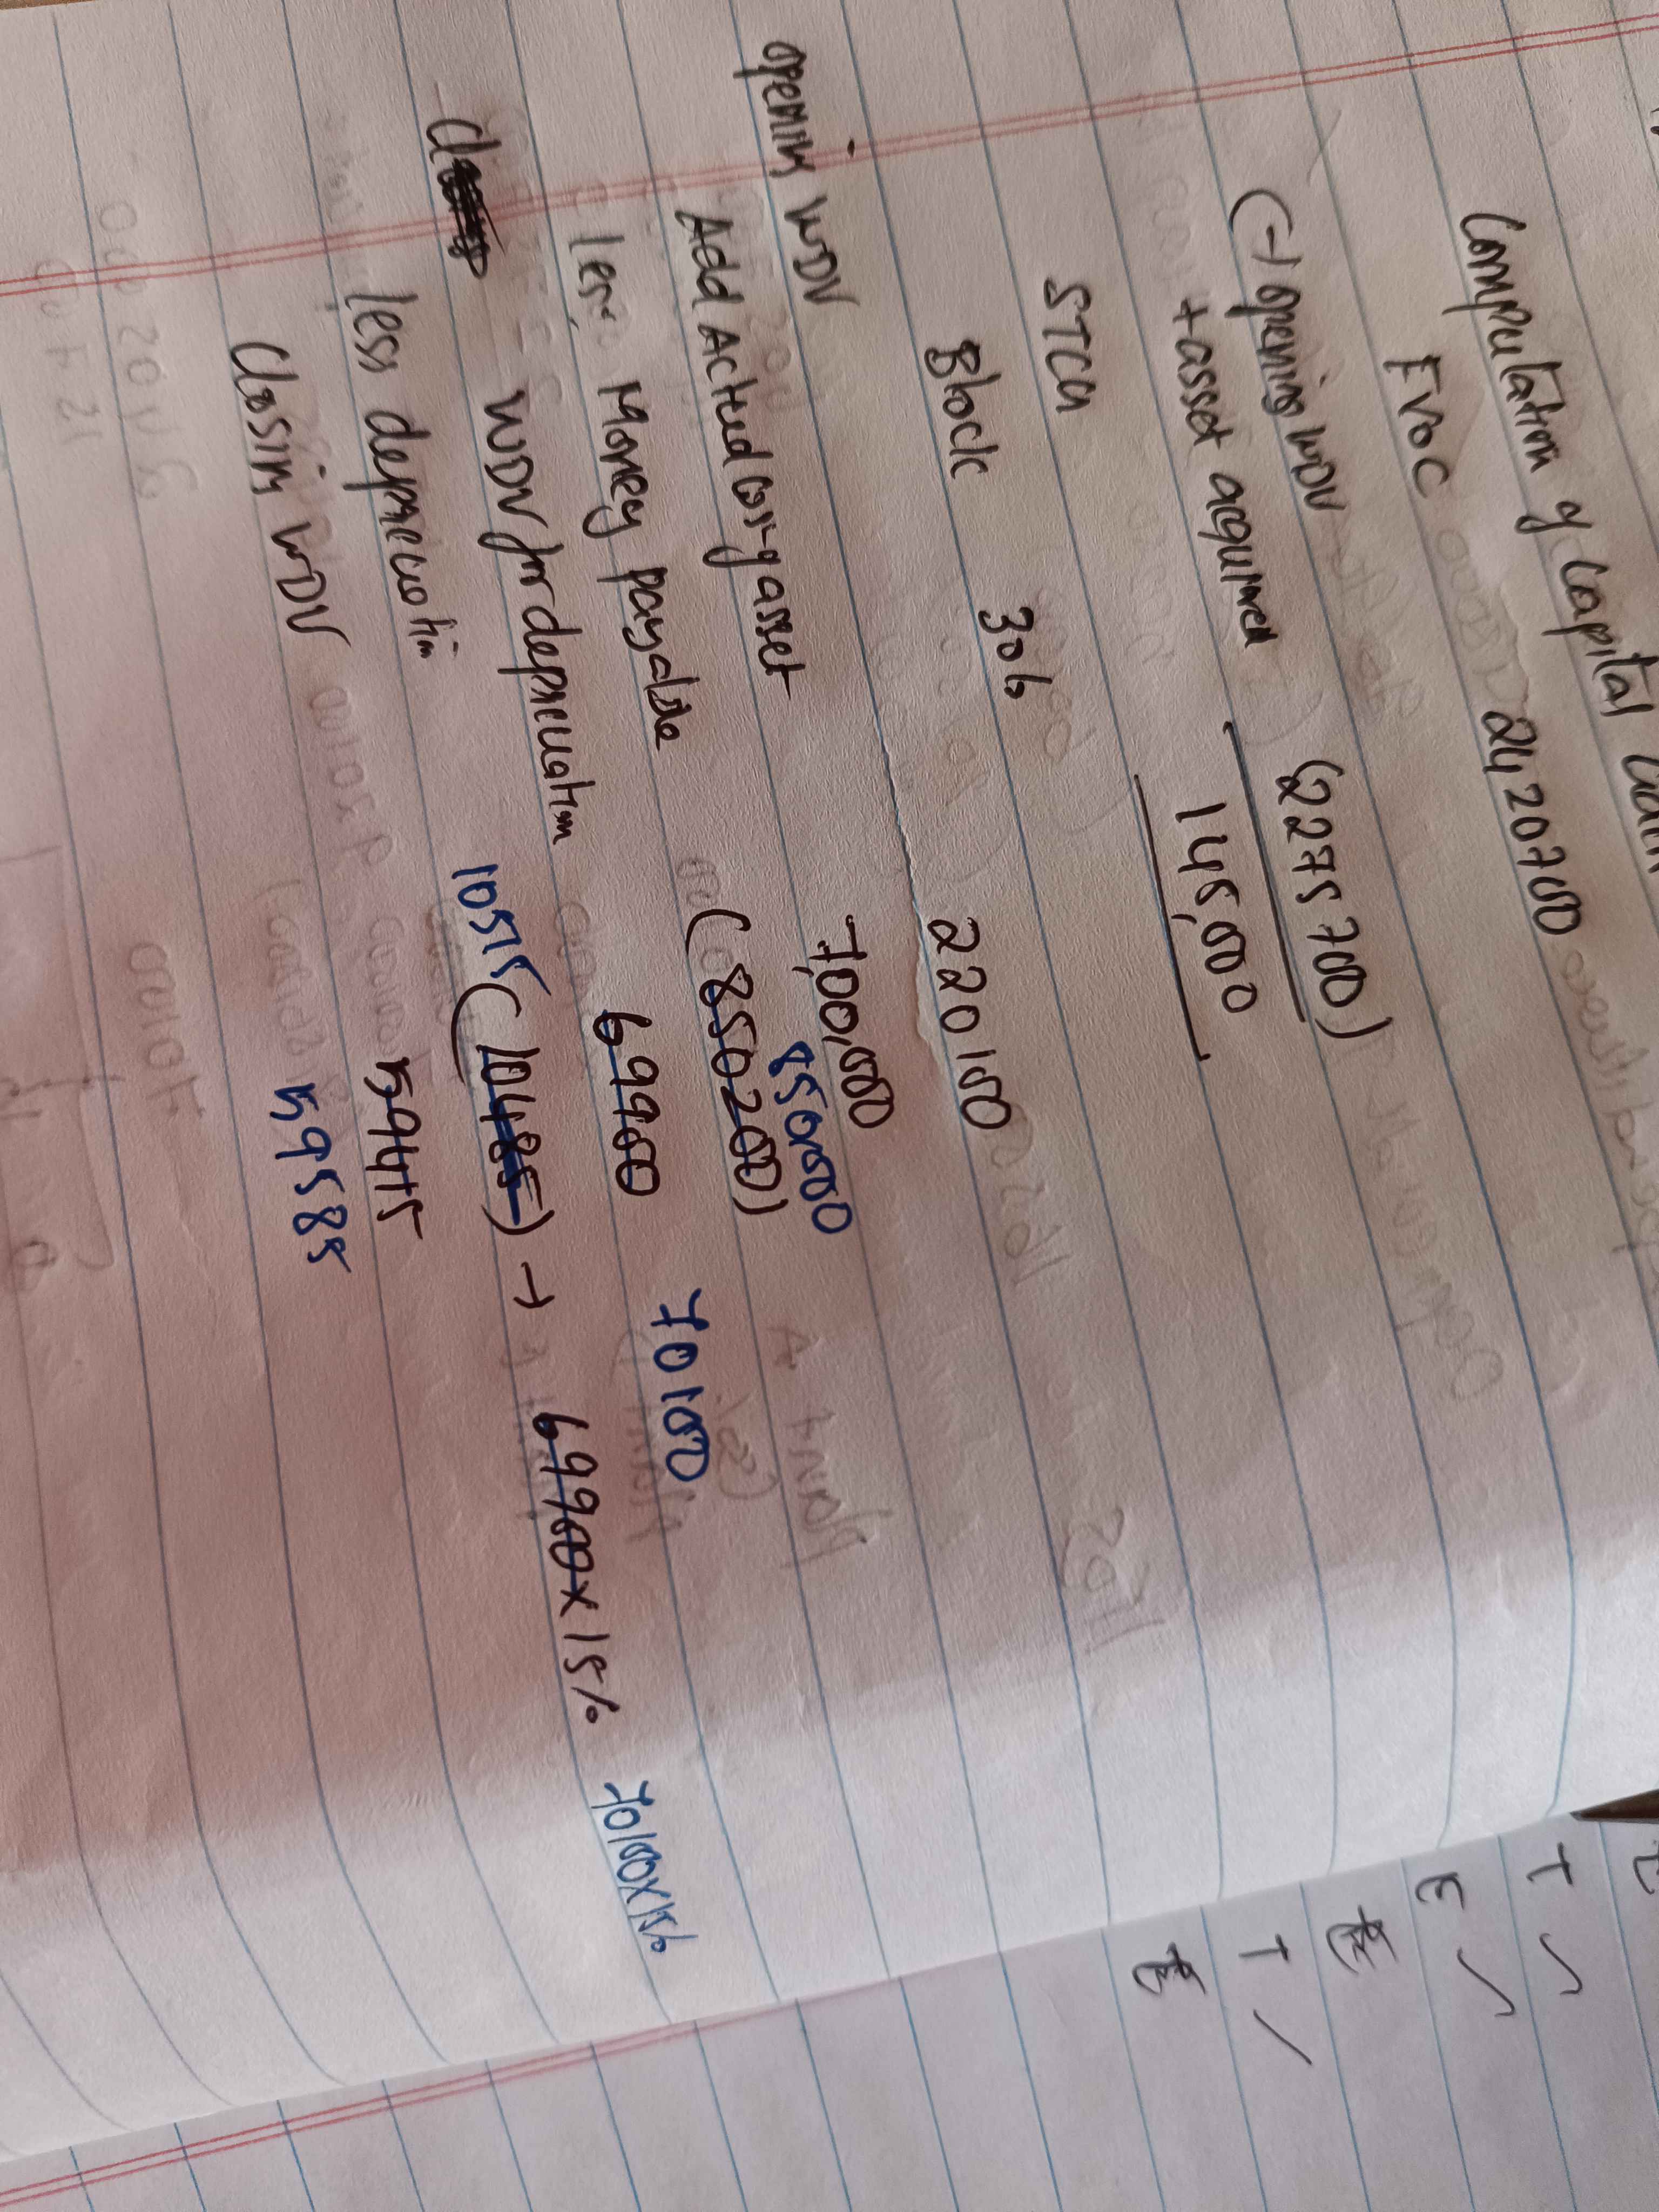 Computation of Capital Gain
FVOC 2420700
(-) opening WDV
+ asset acquired (2275700)
STCG 145,000
Block 30%
opening WDV 220100
Add Actual cost of asset 7,00,000
less Money payable (850200) 850000
WDV for depreciation 69900 70100
less depreciation 10515 (10485) → 69900 x 15% 70100 x 15%
Closing WDV 59415
59585
T
E
E
T
E